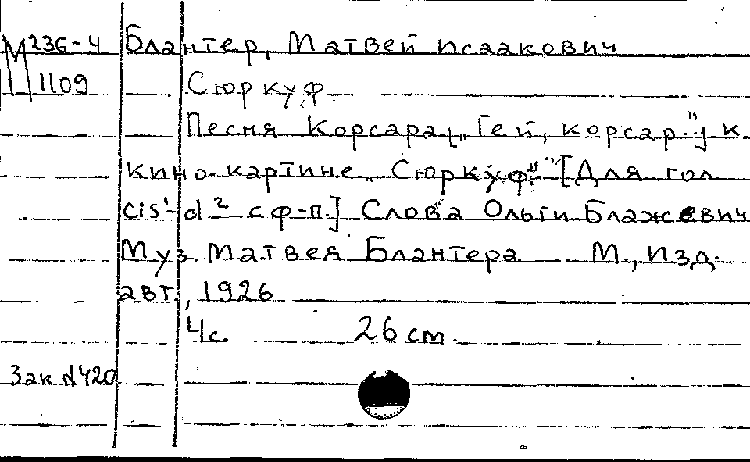 М 236-4 Блантер, Матвей Исаакович
1109 Сюркуф
Песня Корсара [„Гей, корсар"] к
кино-картине „Сюркуф" [Для гол.
cis¹-d² с ф-п.] Слова Ольги Блажевич
Муз. Матвея Блантера М., Изд.
авт., 1926
4 с. 26 cm
Зак N 420